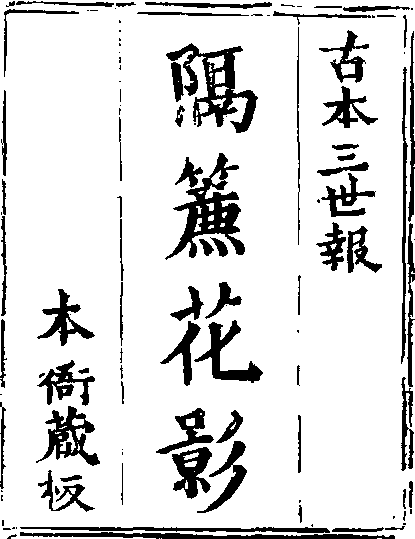 古本三世報
隔簾花影
本衙蔵板